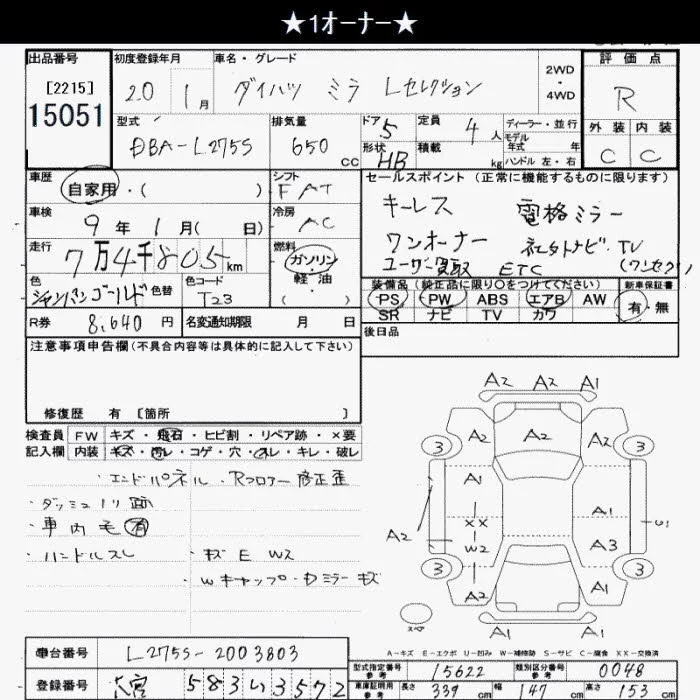 ★1オーナー★
出品番号
[2215]
15051
初度登録年月
20 1月
車名・グレード
ダイハツ ミラ Lセレクション
2WD
・
4WD
評価点
R
外装 内装
C C
型式
DBA-L275S
排気量
650 CC
ドア 5
形状 HB
定員 4 人
積載 kg
ディーラー・並行
モデル
年式 年
ハンドル 左・右
車歴
自家用・( )
シフト
FAT
車検
9年1月( 日)
冷房
AC
走行
7万4千805km
燃料
ガソリン
・
軽油
・
( )
色
シャンパンゴールド
色替
色コード
T23
R券 8,640 円
名変通知期限 月 日
セールスポイント (正常に機能するものに限ります)
キーレス 電格ミラー
ワンオーナー 社外ナビ.TV
ユーザー買取 ETC (ワンセグ)
装備品(純正品に限り○をつけてください)
PS PW ABS エアB AW
SR ナビ TV カワ
新車保証書
有・無
後日品
注意事項申告欄(不具合内容等は具体的に記入して下さい)
修復歴 有 [箇所 ]
検査員 FW キズ・飛石・ヒビ割・リペア跡・×要
記入欄 内装 キズ・汚レ・コゲ・穴・スレ・キレ・破レ
・エンドパネル・Rフロアー修正歪
・ダッシュ
・車内毛有
・ハンドルスレ
・キズ E W2
・Wキャップ・Dミラーキズ
A2 A2 A1
A2 A2 A1
3 3
A1
XX A1
A2 W2 A3 U1
3 3
A2 A1
スペア
A1 A1
A-キズ E-エクボ U-凹み W-補修跡 S-サビ C-腐食 XX-交換済
車台番号 L275S-2003803
登録番号 大宮 583い3572
型式指定番号
参考
15622
類別区分番号
参考
0048
車庫証明用
参考
長さ 339 cm 幅 147 cm 高さ 153 cm